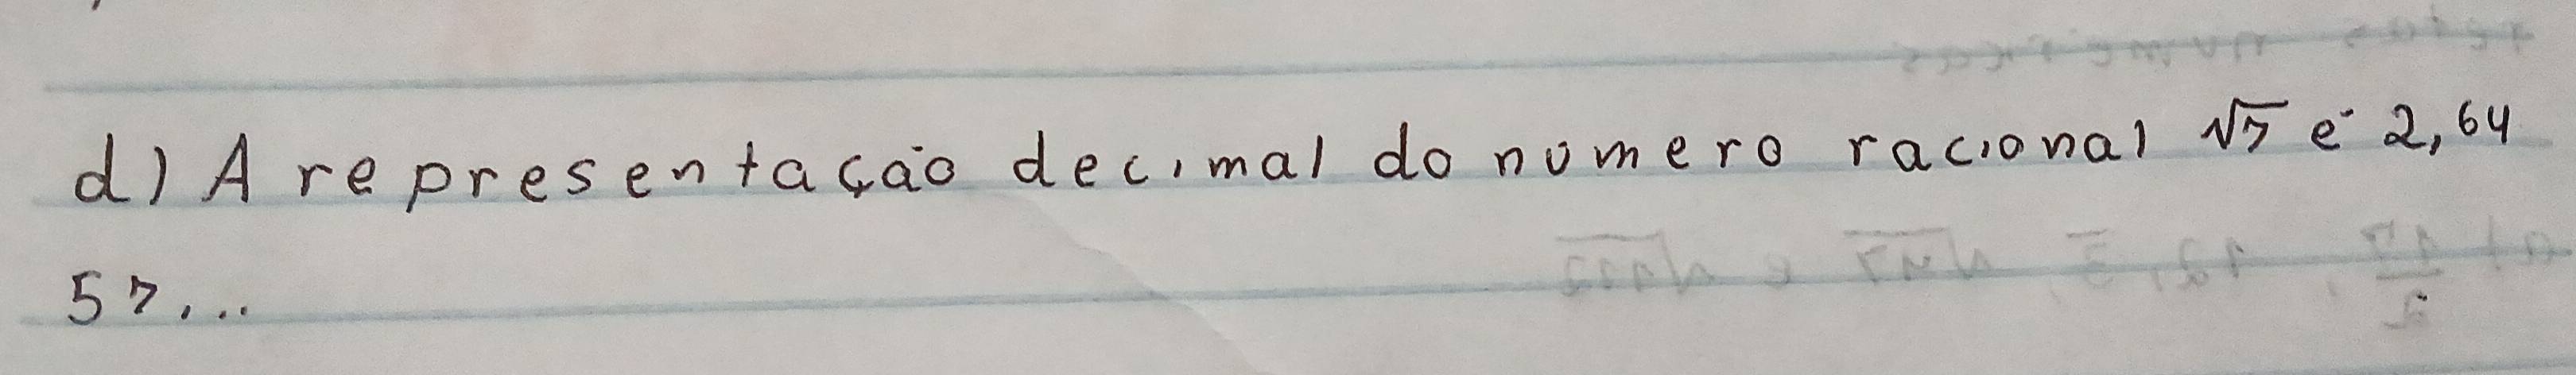 d) A representação decimal do número racional √7 é 2,64
57...